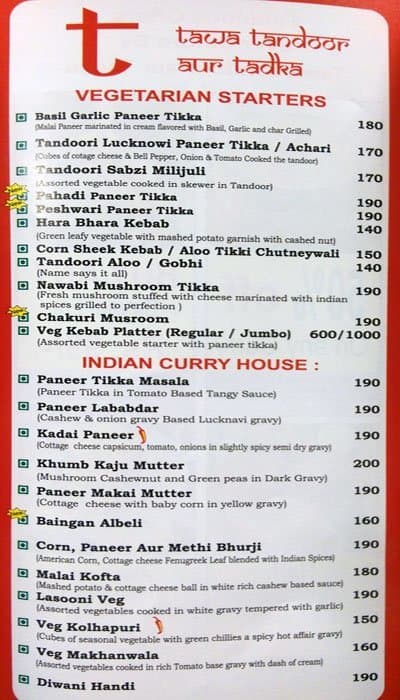 t tawa tandoor
aur tadka
VEGETARIAN STARTERS
Basil Garlic Paneer Tikka
(Malai Paneer marinated in cream flavored with Basil, Garlic and char Grilled) 180
Tandoori Lucknowi Paneer Tikka / Achari
(Cubes of cotage cheese & Bell Pepper, Onion & Tomato Cooked the tandoor) 170
Tandoori Sabzi Milijuli
(Assorted vegetable cooked in skewer in Tandoor) 170
Pahadi Paneer Tikka 190
Peshwari Paneer Tikka 190
Hara Bhara Kebab 140
(Green leafy vegetable with mashed potato garnish with cashed nut)
Corn Sheek Kebab / Aloo Tikki Chutneywali 150
Tandoori Aloo / Gobhi 140
(Name says it all)
Nawabi Mushroom Tikka 190
(Fresh mushroom stuffed with cheese marinated with indian
spices grilled to perfection )
Chakuri Musroom 190
Veg Kebab Platter (Regular / Jumbo) 600/1000
(Assorted vegetable starter with paneer tikka)
INDIAN CURRY HOUSE :
Paneer Tikka Masala 190
(Paneer Tikka in Tomato Based Tangy Sauce)
Paneer Lababdar 190
(Cashew & onion gravy Based Lucknavi gravy)
Kadai Paneer 190
(Cottage cheese capsicum, tomato, onions in slightly spicy semi dry gravy)
Khumb Kaju Mutter 200
(Mushroom Cashewnut and Green peas in Dark Gravy)
Paneer Makai Mutter 190
(Cottage cheese with baby corn in yellow gravy)
Baingan Albeli 160
Corn, Paneer Aur Methi Bhurji 190
(American Corn, Cottage cheese Fenugreek Leaf blended with Indian Spices)
Malai Kofta 180
(Mashed potato & cottage cheese ball in white rich cashew based sauce)
Lasooni Veg 190
(Assorted vegetables cooked in white gravy tempered with garlic)
Veg Kolhapuri 150
(Cubes of seasonal vegetable with green chillies a spicy hot affair gravy)
Veg Makhanwala 160
(Assorted vegetables cooked in rich Tomato base gravy with dash of cream)
Diwani Handi 190